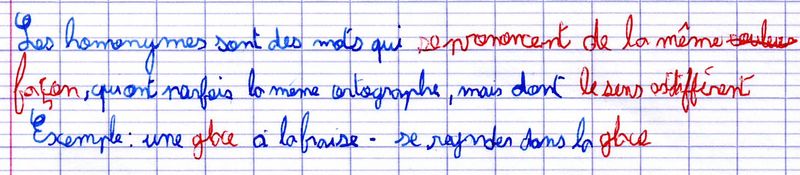 Les homonymes sont des mots qui se prononcent de la même
façon, qu ont parfois la même ortographe, mais dont le sens est différent
Exemple : une glace à la fraise - se regarder dans la glace